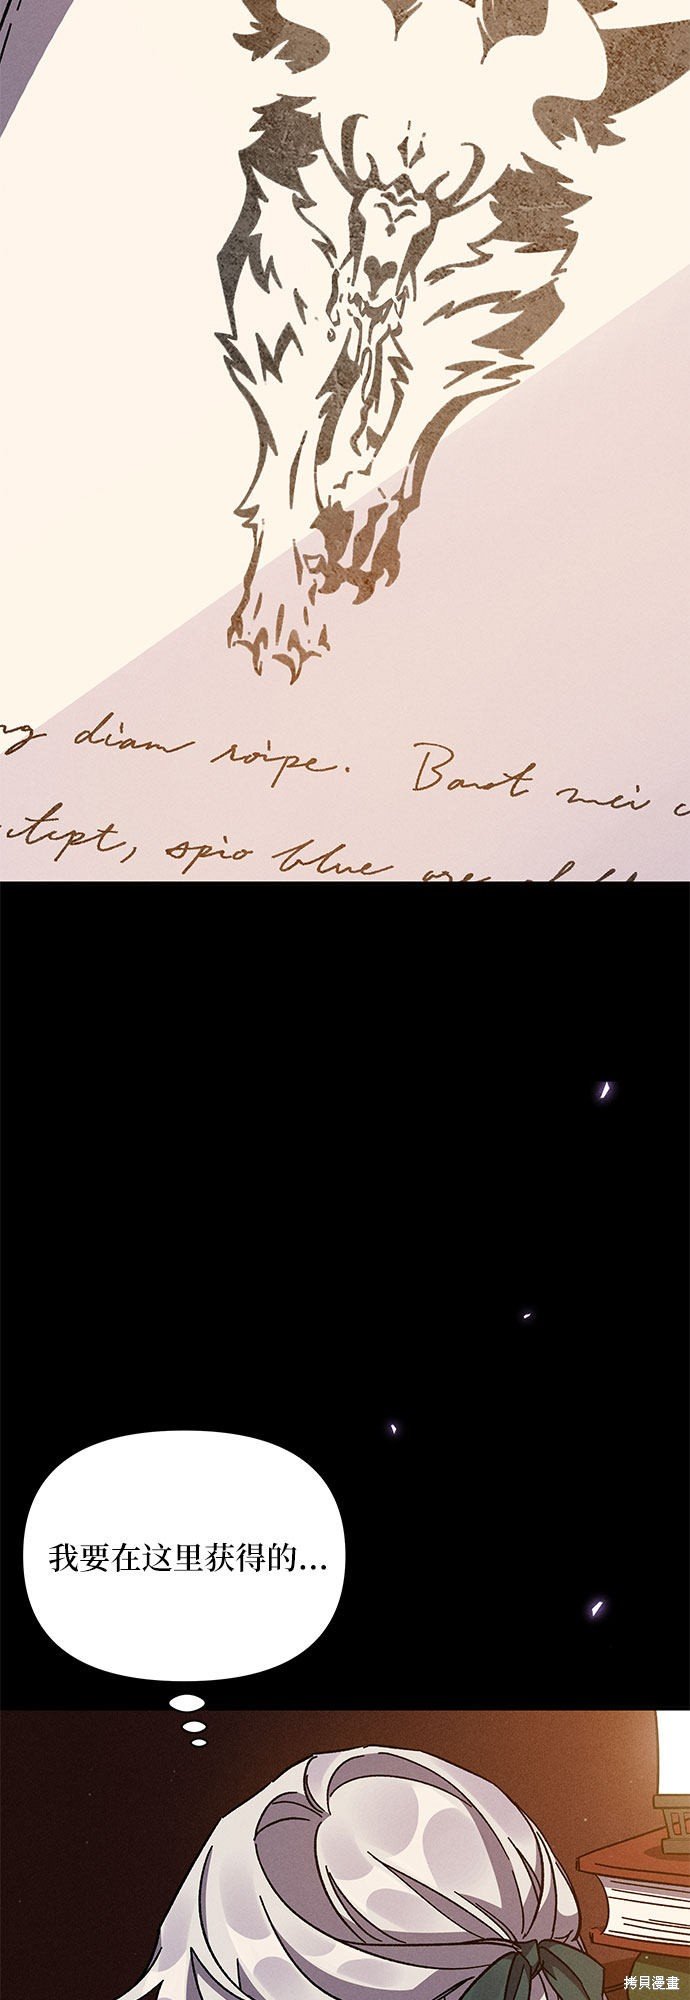 ng diam roipe. Barot mei
tept, spio blue are
我要在这里获得的...
拷貝漫畫